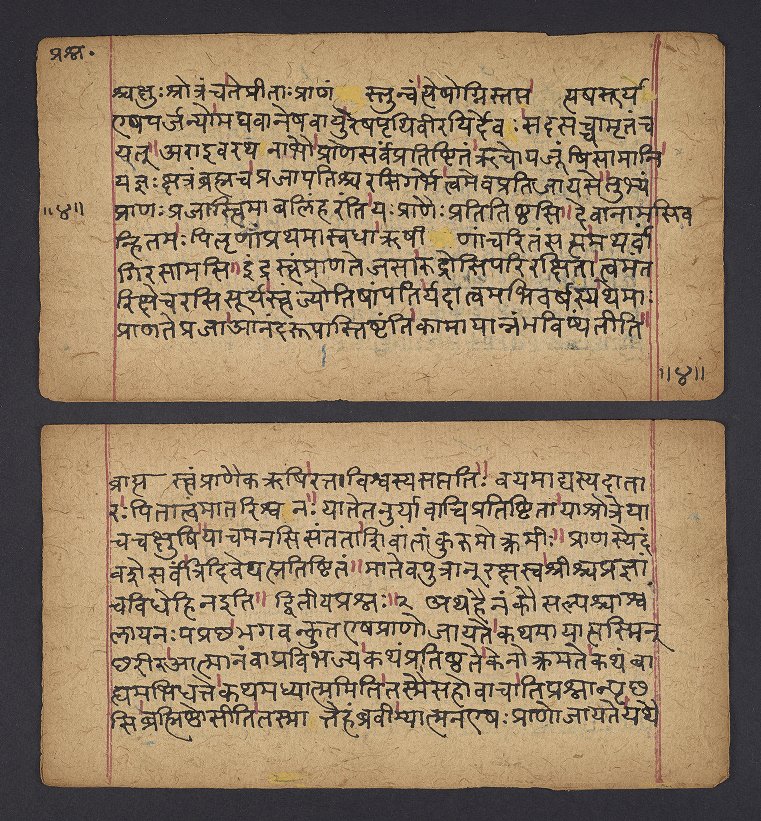 प्रश्न.
श्चक्षुः श्रोत्रं च ते प्रीताः प्राणं स्तुन्वंत्येषोग्निस्तप्त त्येषसूर्य
एषपर्जन्योमघवानेषवायुरेषपृथिवीरयिर्देवः सदसच्चामृतंच
यत् अराइवरथनाभौप्राणेसर्वंप्रतिष्टितंऋचोयजूंषिसामानि
यज्ञः क्षत्रंब्रह्मच प्रजापतिश्चरसिगर्भेत्वमेवप्रतिजायसेतुभ्यं
॥४॥
प्राणः प्रजास्त्विमाबलिंहरतियः प्राणैः प्रतितिष्ठसि॥ देवानामसिव
न्हितमः पितॄणांप्रथमास्वधाऋषीणांचरितंसत्यमथर्वां
गिरसामसि॥ इंद्रस्त्वंप्राणतेजसारुद्रोसिपरिरक्षिता त्वमंत
रिक्षेचरसिसूर्यस्त्वंज्योतिषांपतिर्यदात्वमभिवर्षस्यथेमाः
प्राणतेप्रजाआनंदरूपास्तिष्टंतिकामायान्नंभविष्यतीति॥
॥४॥
व्रात्य स्त्वंप्राणैकऋषिरत्ताविश्वस्यसत्पतिः॥ वयमाद्यस्यदाता
रः पितात्वंमातरिश्वनः॥ यातेतनूर्यावाचिप्रतिष्टितायाश्रोत्रेया
चचक्षुषियाचमनसिसंतताशिवांतांकुरुमोक्रमीः॥ प्राणस्येदं
वशेसर्वंत्रिदिवेयत्प्रतिष्टितं॥ मातेवपुत्रान्रक्षस्वश्रीश्चप्रज्ञां
चविधेहिनइति॥ द्वितीयप्रश्नः॥२ अथहैनंकौसल्यश्चाश्व
लायनः पप्रछभगवन्कुतएषप्राणोजायतेकथमायात्यस्मिन्
छरीरआत्मानंवाप्रविभज्यकथंप्रतिष्ठतेकेनोत्क्रमतेकथंबा
ह्यमभिधत्तेकथमध्यात्ममितितस्मैसहोवाचातिप्रश्नान्पृछ
सिब्रह्मिष्ठोसीतितस्मात्तेहंब्रवीम्यात्मनएषः प्राणोजायतेयथै